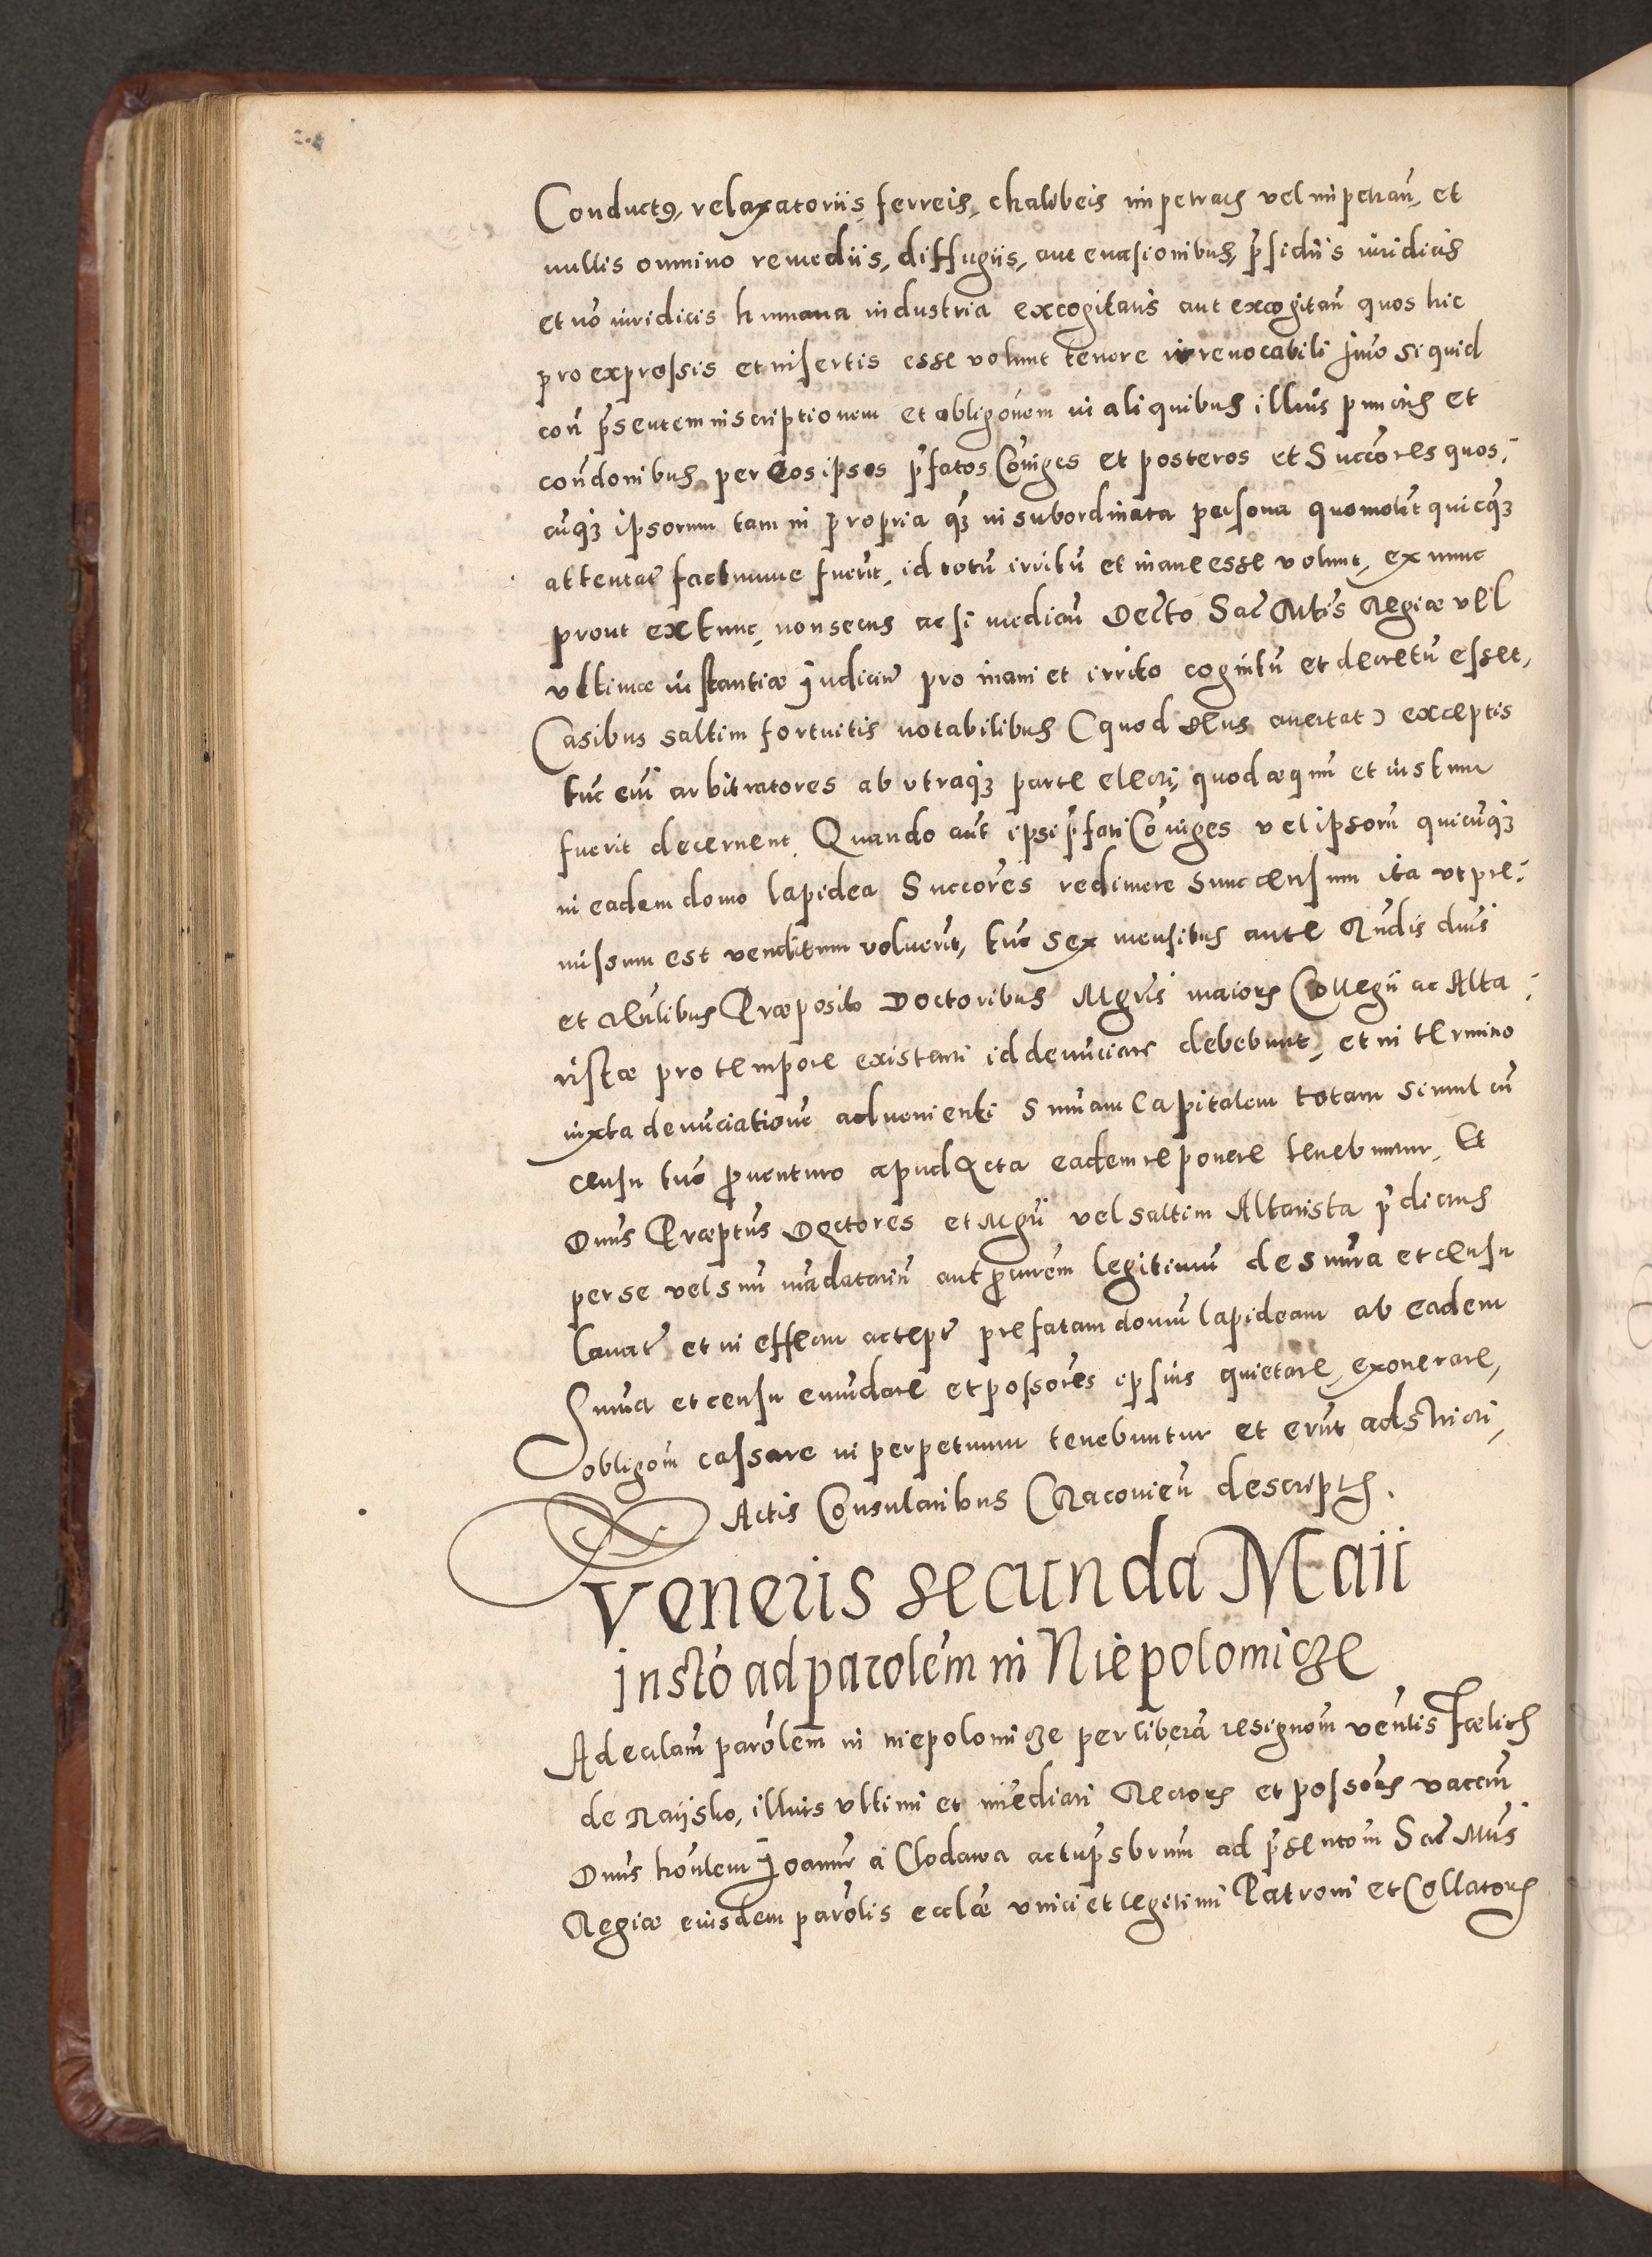 Conductꝰ, relaxatoriis ferreis, chalibeis impetratis vel impetran̄, et
nullis omnino remediis, diffugiis, aut euasionibus, p̄sidiis iuridicis
et nō iuridicis humana industria excogitatis aut excogitan̄ quos hic
pro expressis et insertis esse volunt tenore irreuocabili Imo si quid
con̄ p̄sentem inscriptionem et obligōnem in aliquibus illius punctis et
con̄donibus per Eos ipsos p̄fatos Cōniges et posteros et Succōres quos-
cūqꝫ ipsorum tam in propria qꝫ in subordinata persona quomolt̄ quicqꝫ
attentat̄ factumue fuerit, id totū irritū et inane esse volunt, ex nunc
prout ex tunc, non secus ac si median̄ Decto Sac̄ Mtis Regiæ vel
vltimæ instantiæ Iudicium pro inani et irrito cognitū et decretū esset,
Casibus saltim fortuitis notabilibus (quod deus auertat) exceptis
tūc eni arbitratores ab vtraqꝫ parte electi, quod æquū et iustum
fuerit decernent. Quando aūt ipsi p̄fati Cōniges vel ipsorū quicūqꝫ
in eadem domo lapidea Succōres redimere hunc censum ita vt pre-
missum est venditum voluerīt, tūc sex mensibus ante Rndis dnis
et Ven̄libus Præposito Doctoribus Mgris maioris Collegii ac Alta-
ristæ pro tempore existenti id denūciare debebunt, et in termino
iuxta denūciationē aduenienti Smām Capitalem totam simul cū
censu tūc ꝓuenturo apud Acta eadem reponere tenebuntur, Et
Dnus Præptus Doctores et Mgri vel saltim Altarista p̄dictus
per se vel suū mādatariū aut ꝓcur̄em legitimū de smma et censu
leuat̄ et in effectu accept̄ prefatam domū lapideam ab eadem
Smma et censu emūdare et possōres ipsius quietare, exonerare,
obligōm cassare in perpetuum tenebuntur et erūt adstricti,
Actis Consularibus Cracouien̄ descriptis.
Veneris secunda Maii
Instō ad parolēm in Niepolomicze
Ad ecclām parōlem in niepolomicze per liberā resignōm vēnlis Fælicis
de Raijsko, illius vltimi et imēdiati Rectoris et possōris vacan̄
Dnus honlem Ioannē a Clodawa actu p̄sbrum ad p̄sentōm Sac̄ Mtis
Regiæ eiusdem parōlis ecclæ vnici et legitimi Patroni et Collatoris